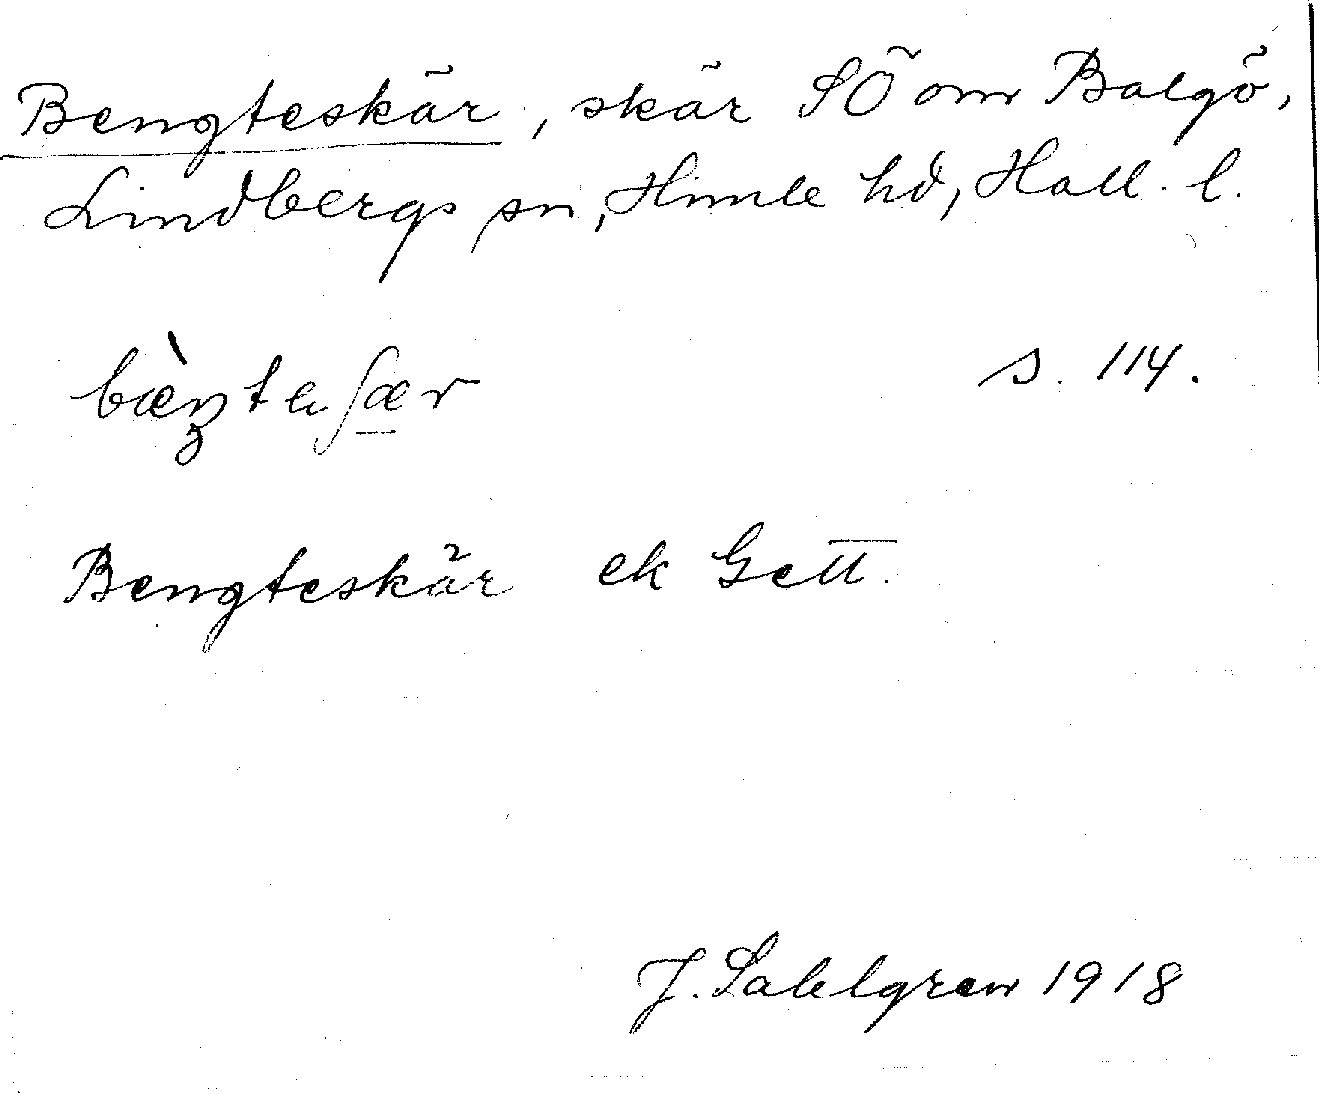 Bengteskär, skär SÖ om Balgö,
Lindbergs sn, Himle hd, Hall. l.
bæ̀ŋtaʃær s. 114.
Bengteskär ek Gett.
J. Sahlgren 1918